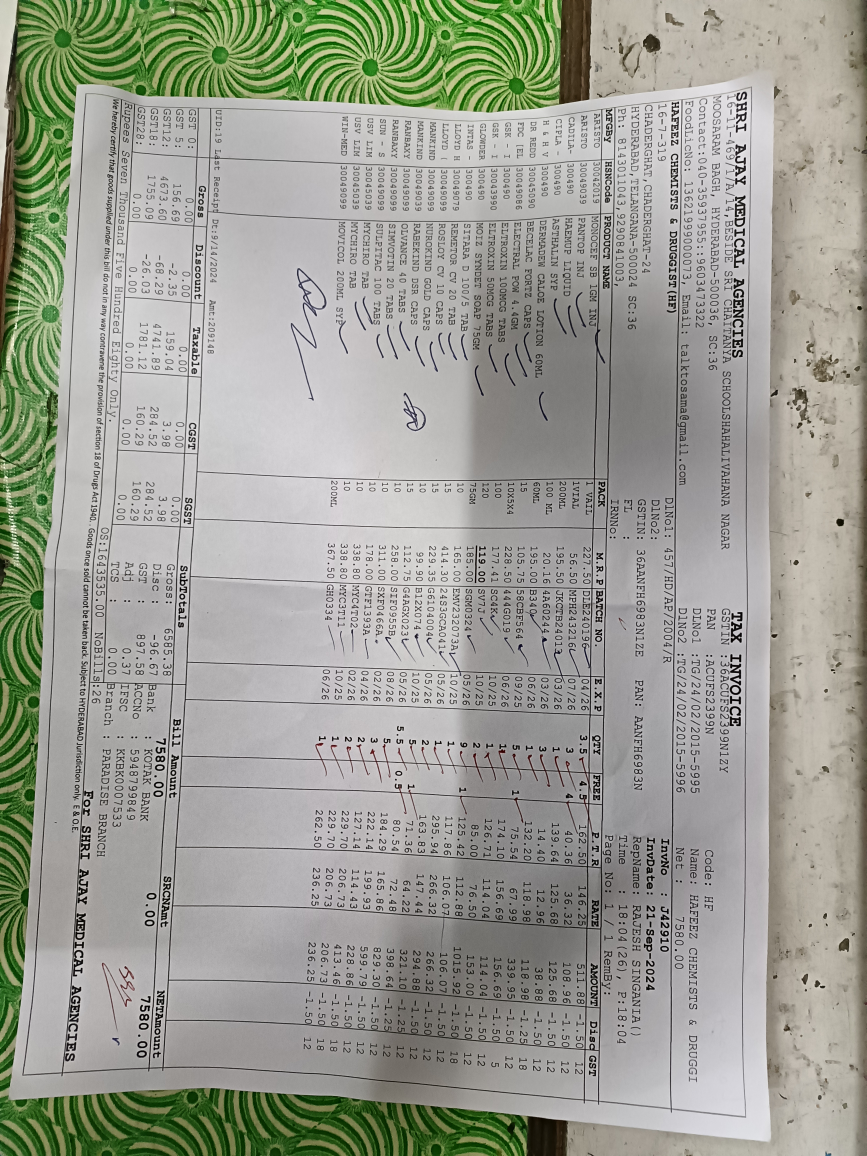 SHRI AJAY MEDICAL AGENCIES
16-11-469/7/A/14,BESIDE SRI CHAITANYA SCHOOLSHAHALIVAHANA NAGAR
MOOSARAM BAGH, HYDERABAD-500036, SC:36
Contact:040-35937955:9603473322
FoodLicNo: 13621999000073 Email: talktosama@gmail.com
TAX INVOICE
GSTIN :36ACUFS2399N1ZY
PAN :ACUFS2399N
DlNo1 :TG/24/02/2015-5995
DlNo2 :TG/24/02/2015-5996
Code: HF
Name: HAFEEZ CHEMISTS & DRUGGI
Net : 7580.00
HAFEEZ CHEMISTS & DRUGGIST(HF)
16-7-319
CHADERGHAT,CHADERGHAT-24
HYDERABAD,TELANGANA-500024 SC:36
Ph: 8143011043,9290841003,
DlNo1: 457/HD/AP/2004/R
DlNo2:
GSTIN: 36AANFH6983N1ZE PAN: AANFH6983N
FL :
IRNNo:
InvNo : J42910
InvDate: 21-Sep-2024
RepName: RAJESH SINGANIA()
Time : 18:04(26), P:18:04
Page No: 1 / 1 RemBy:
MFGBy HSNCode PRODUCT NAME PACK M.R.P BATCH NO. E.X.P QTY FREE P.T.R RATE AMOUNT Disc GST
ARISTO 30042019 MONOCEF SB 1GM INJ 1 VAIL 227.50 DLE240196 04/26 3.5 4.5 162.50 146.25 511.88 -1.50 12
ARISTO 30049039 PANTOP INJ 1VIAL 56.50 MFH243216 07/26 3 4 40.36 36.32 108.96 -1.50 12
CADILA- 300490 HAEMUP LIQUID 200ML 195.50 JKCTB24013 03/26 1 139.64 125.68 125.68 -1.50 12
CIPLA - 300490 ASTHALIN SYP 100 ML 20.16 IA40244 03/26 3 14.40 12.96 38.88 -1.50 12
H & H V 300490 DERMADEW CALOE LOTION 60ML 60ML 195.00 B340 06/26 1 132.20 118.98 118.98 -1.25 18
DR REDD 30045090 BECELAC FORTZ CAPS 15 105.75 58CBF564 09/25 5 1 75.54 67.99 339.95 -1.50 12
FDC (EL 30049086 ELECTRAL POW 4.4GM 10X5X4 228.50 444G019 06/25 1 174.10 156.69 156.69 -1.50 5
GSK - I 300490 ELTROXIN 100MCG TABS 100 177.41 SC4K 10/25 1 126.71 114.04 114.04 -1.50 12
GSK - I 30043990 ELTROXIN 50MCG TABS 120 119.00 SV77 10/25 2 85.00 76.50 153.00 -1.50 12
GLOWDER 300490 MOIZ SYNDET SOAP 75GM 75GM 185.00 SGM0324 05/26 9 1 125.42 112.88 1015.92 -1.50 18
INTAS - 300490 SITARA D 100/5 TAB 10 165.00 EMV232073A 10/25 1 117.86 106.07 106.07 -1.50 12
LLOYD H 30049079 REMETOR CV 20 TAB 15 414.30 24S3GCA041 05/26 1 295.94 266.32 266.32 -1.50 12
LLOYD ( 30049099 ROSLOY CV 10 CAPS 10 229.35 G6104004 05/26 2 163.83 147.44 294.88 -1.50 12
MANKIND 30049099 NUROKIND GOLD CAPS 10 99.90 B12X074 05/26 5 1 71.36 64.22 321.10 -1.25 12
MANKIND 30049039 RABEKIND DSR CAPS 15 112.75 GAGX023 05/26 5.5 0.5 80.54 72.48 398.64 -1.25 12
RANBAXY 30049099 OLVANCE 40 TABS 10 258.00 SIF0955B 08/26 5 184.29 165.86 829.30 -1.50 12
RANBAXY 30049099 SIMVOTIN 20 TABS 10 311.00 SXF0466A 02/26 3 222.14 199.93 599.79 -1.50 12
SUN - S 30049099 SULFITAC 100 TABS 10 178.00 GTF1393A 04/26 2 127.14 114.43 228.86 -1.50 12
USV LIM 30045039 MYCHIRO TAB 10 338.80 MYC4T02 02/26 2 229.70 206.73 413.46 -1.50 18
USV LIM 30045039 MYCHIRO TAB 10 338.80 MYC3T11 10/25 1 229.70 206.73 206.73 -1.50 18
WIN-MED 30049099 MOVICOL 200ML SYP 200ML 367.50 GH0334 06/26 1 262.50 236.25 236.25 -1.50 12
UID:19 Last Receipt Dt:9/14/2024 Amt:209148
Gross Discount Taxable CGST SGST SubTotals Bill Amount SRCNAmt NETAmount
GST 0: 0.00 0.00 0.00 0.00 0.00 Gross: 6585.38 7580.00 0.00 7580.00
GST 5: 156.69 -2.35 159.04 3.98 3.98 Disc : -96.67 Bank : KOTAK BANK
GST12: 4673.60 -68.29 4741.89 284.52 284.52 GST : 897.58 AccNo : 5948799849
GST18: 1755.09 -26.03 1781.12 160.29 160.29 Adj : 0.37 IFSC : KKBK0007533
GST28: 0.00 0.00 0.00 0.00 0.00 TCS : 0.00 Branch : PARADISE BRANCH
Rupees Seven Thousand Five Hundred Eighty Only. OS:1643535.00 NoBills:26
We hereby certify that goods supplied under this bill do not in any way contravene the provision of section 18 of Drugs Act 1940. Goods once sold cannot be taken back. Subject to HYDERABAD Jurisdiction only. E & O.E.
For SHRI AJAY MEDICAL AGENCIES